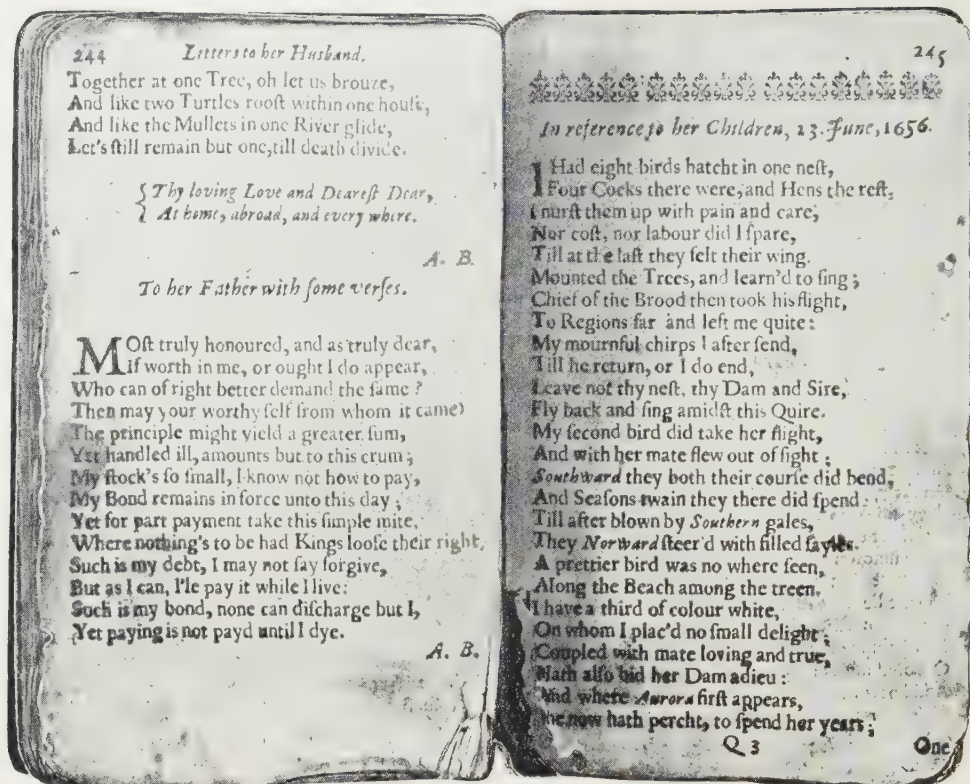 244 Letters to her Husband.
Together at one Tree, oh let us brouze,
And like two Turtles rooſt within one houſe,
And like the Mullets in one River glide,
Let's ſtill remain but one, till death divide.
Thy loving Love and Deareſt Dear,
At home, abroad, and every where.
A. B.
To her Father with ſome verſes.
MOſt truly honoured, and as truly dear,
If worth in me, or ought I do appear,
Who can of right better demand the ſame?
Then may your worthy ſelf from whom it came)
The principle might yield a greater ſum,
Yet handled ill, amounts but to this crum;
My ſtock's ſo ſmall, I know not how to pay,
My Bond remains in force unto this day;
Yet for part payment take this ſimple mite,
Where nothing's to be had Kings looſe their right,
Such is my debt, I may not ſay forgive,
But as I can, I'le pay it while I live:
Such is my bond, none can diſcharge but I,
Yet paying is not payd until I dye.
A. B.
245
In reference to her Children, 23. June, 1656.
I Had eight birds hatcht in one neſt,
Four Cocks there were, and Hens the reſt,
I nurſt them up with pain and care,
Nor coſt, nor labour did I ſpare,
Till at the laſt they felt their wing.
Mounted the Trees, and learn'd to ſing;
Chief of the Brood then took his flight,
To Regions far and left me quite:
My mournful chirps I after ſend,
Till he return, or I do end,
Leave not thy neſt, thy Dam and Sire,
Fly back and ſing amidſt this Quire.
My ſecond bird did take her flight,
And with her mate flew out of ſight;
Southward they both their courſe did bend,
And Seaſons twain they there did ſpend:
Till after blown by Southern gales,
They Norward ſteer'd with filled ſayles.
A prettier bird was no where ſeen,
Along the Beach among the treen.
I have a third of colour white,
On whom I plac'd no ſmall delight;
Coupled with mate loving and true,
Hath alſo bid her Dam adieu:
And where Aurora firſt appears,
She now hath percht, to ſpend her years;
Q 3 One